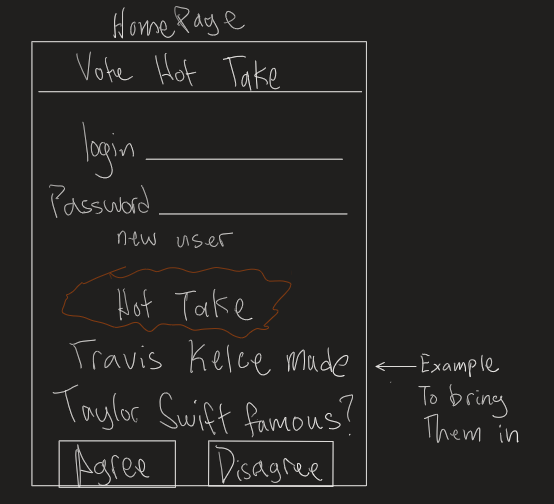 HomePage
Vote Hot Take
login
Password
new user
Hot Take
Travis Kelce made
Taylor Swift famous?
Agree Disagree
Example
To bring
Them in